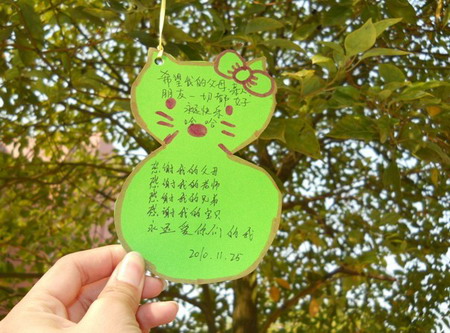 希望我的父母亲人
朋友一切都好
永远快乐
哈哈
感谢我的父母
感谢我的老师
感谢我的兄弟
感谢我的宝贝
永远爱你们的我
2010.11.25